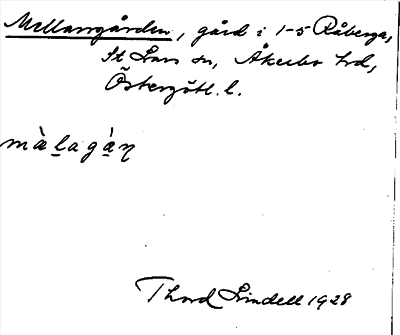 Mellangården, gård i 1-5 Råberga,
St Lars sn, Åkerbo hd,
Östergötl. l.
mà̱lagá̱ṇ
Thord Lindell 1928